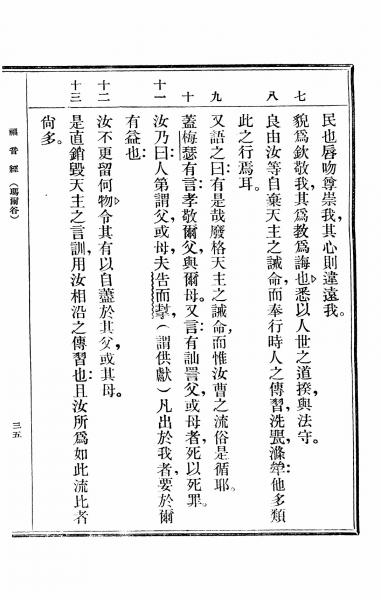 民也唇吻尊崇我,其心則違遠我。
七 貌為欽敬我,其為教為誨也,悉以人世之道揆,與法守。
八 良由汝等自棄天主之誡命,而奉行時人之傳習,洗甖滌斝,他多類
此之行焉耳。
九 又語之曰:有是哉廢格天主之誡命,而惟汝曹之流俗是循耶。
十 蓋梅瑟有言:孝敬爾父,與爾母。又言:有訕詈父,或母者,死以死罪。
十一 汝乃曰:人第謂父,或母,夫告而,(謂供獻)凡出於我者,要於爾
有益也:
十二 汝不更留何物,令其有以自藎於其父,或其母。
十三 是直銷毀天主之言訓,用汝相沿之傳習也:且汝所為如此流比者
尙多。
福音經(瑪爾谷)
三五